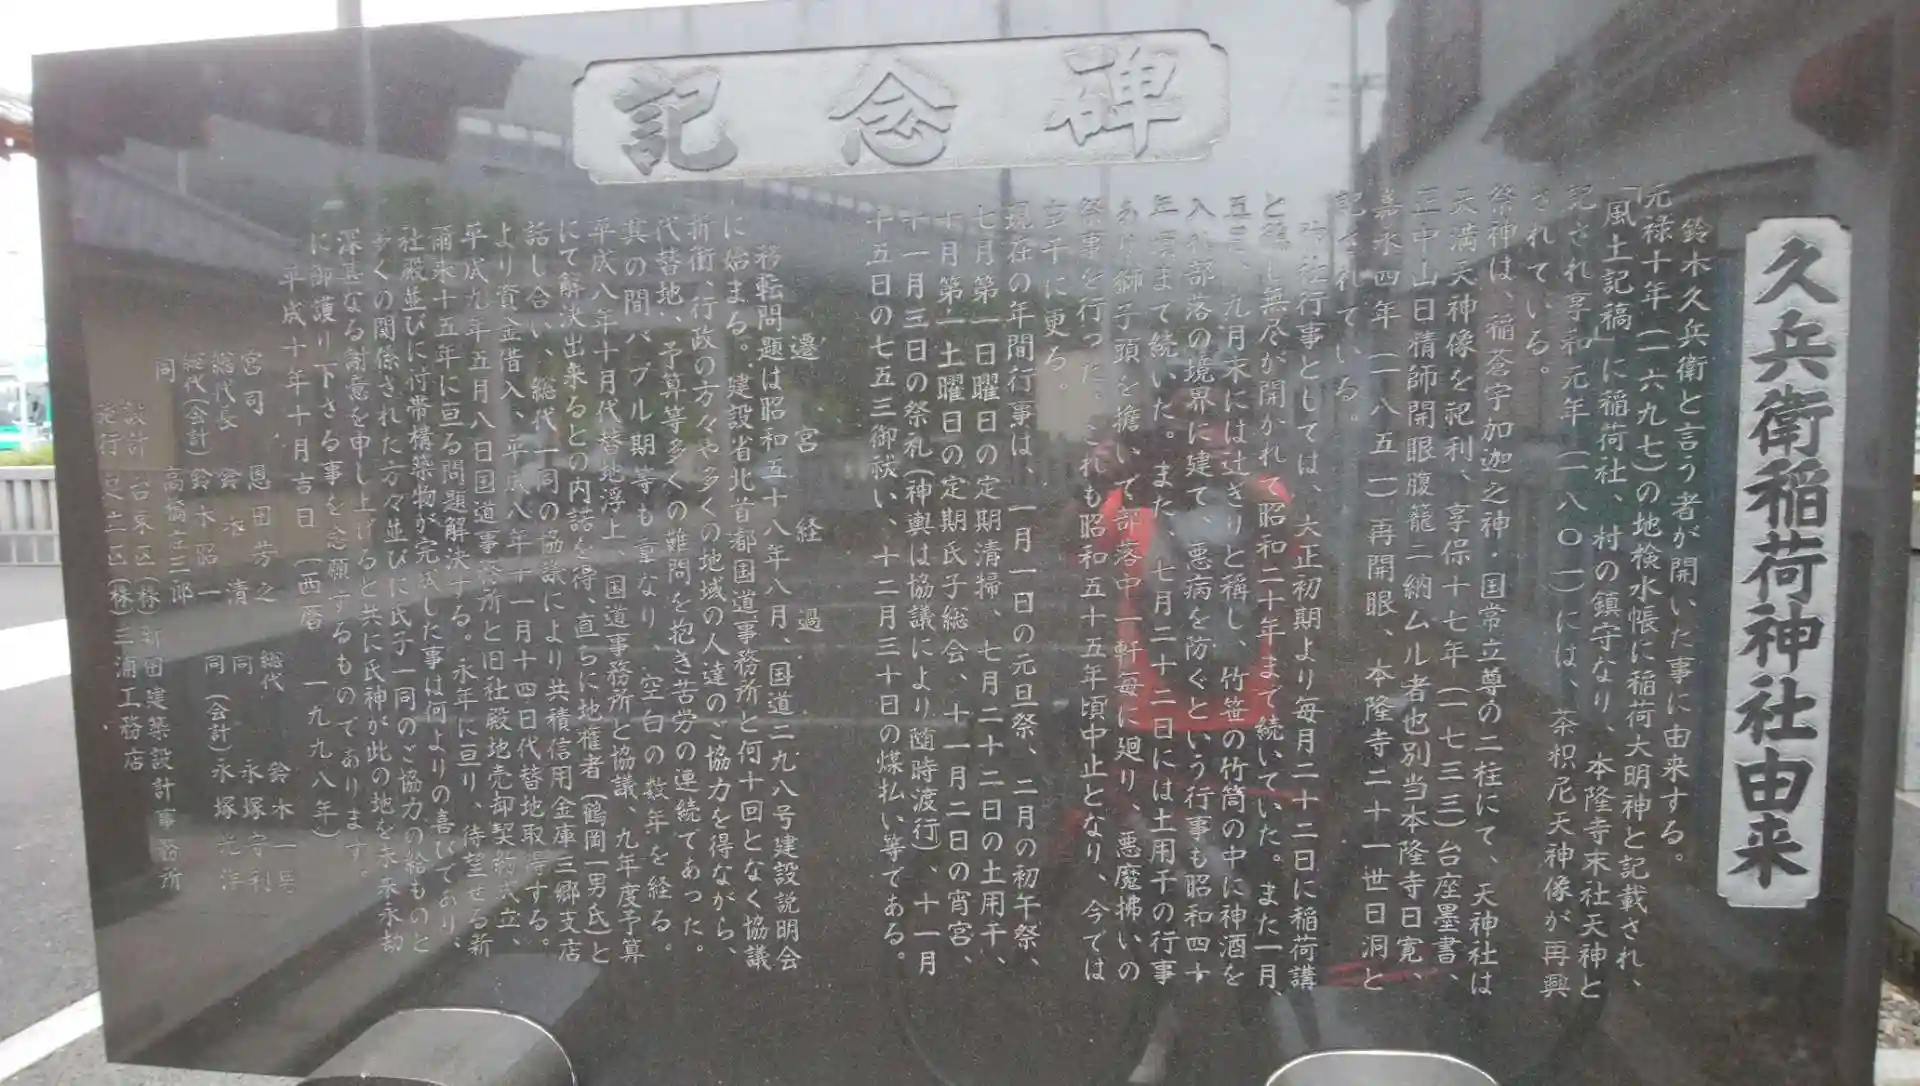 記念碑
久兵衛稲荷神社由来
鈴木久兵衛と言う者が開いた事に由来する。
元禄十年(一六九七)の地検水帳に稲荷大明神と記載され、
「風土記稿」に稲荷社、村の鎮守なり、本隆寺末社天神と
記され享和元年(一八〇一)には、荼枳尼天神像が再興
されている。
祭神は、稲蒼宇加迦之神・国常立尊の二柱にて、天神社は
天満天神像を祀利、享保十七年(一七三三)台座墨書、
正中山日精師開眼腹籠二納ムル者也別当本隆寺日寛、
嘉永四年(一八五一)再開眼、本隆寺二十一世日洞と
記されている。
社行事としては、大正初期より毎月二十二日に稲荷講
と称し無尽が開かれて昭和二十年まで続いていた。また一月、
五月、九月末には辻ぎりと称し、竹笹の竹筒の中に神酒を
入れ部落の境界に建て、悪病を防ぐという行事も昭和四十
年頃まで続いた。また、七月二十二日には土用干の行事
あり獅子頭を擔いで部落中一軒毎に廻り、悪魔拂いの
祭事を行った。これも昭和五十五年頃中止となり、今では
土干に更る。
現在の年間行事は、一月一日の元旦祭、二月の初午祭、
七月第一日曜日の定期清掃、七月二十二日の土用干、
十月第一土曜日の定期氏子総会、十一月二日の宵宮、
十一月三日の祭礼(神輿は協議により随時渡行)、十一月
十五日の七五三御祓い、十二月三十日の煤払い等である。
遷宮経過
移転問題は昭和五十八年八月、国道二九八号建設説明会
に始まる。建設省北首都国道事務所と何十回となく協議
折衝、行政の方々や多くの地域の人達のご協力を得ながら、
代替地、予算等多くの難問を抱き苦労の連続であった。
其の間バブル期等も重なり、空白の数年を経る。
平成八年十月代替地浮上、国道事務所と協議、九年度予算
にて解決出来るとの内諾を得、直ちに地権者(鶴岡一男氏)と
話し合い、総代一同の協議により共積信用金庫三郷支店
より資金借入、平成八年十一月十四日代替地取得する。
平成九年五月八日国道事務所と旧社殿地売却契約成立、
爾来十五年に亘る問題解決する。永年に亘り、待望せる新
社殿並びに付帯構築物が完成した事は何よりの喜びであり、
多くの関係された方々並びに氏子一同のご協力の給ものと
深甚なる謝意を申し上げると共に氏神が此の地を未来永劫
に御護り下さる事を念願するものであります。
平成十年十月吉日(西暦一九九八年)
宮司 恩田芳之 総代 鈴木一男
総代長 鈴木清 同 永塚守利
総代(会計)鈴木昭一 同(会計)永塚光洋
同 高橋庄三郎
設計 台東区(株)新田建築設計事務所
施行 足立区(株)三浦工務店